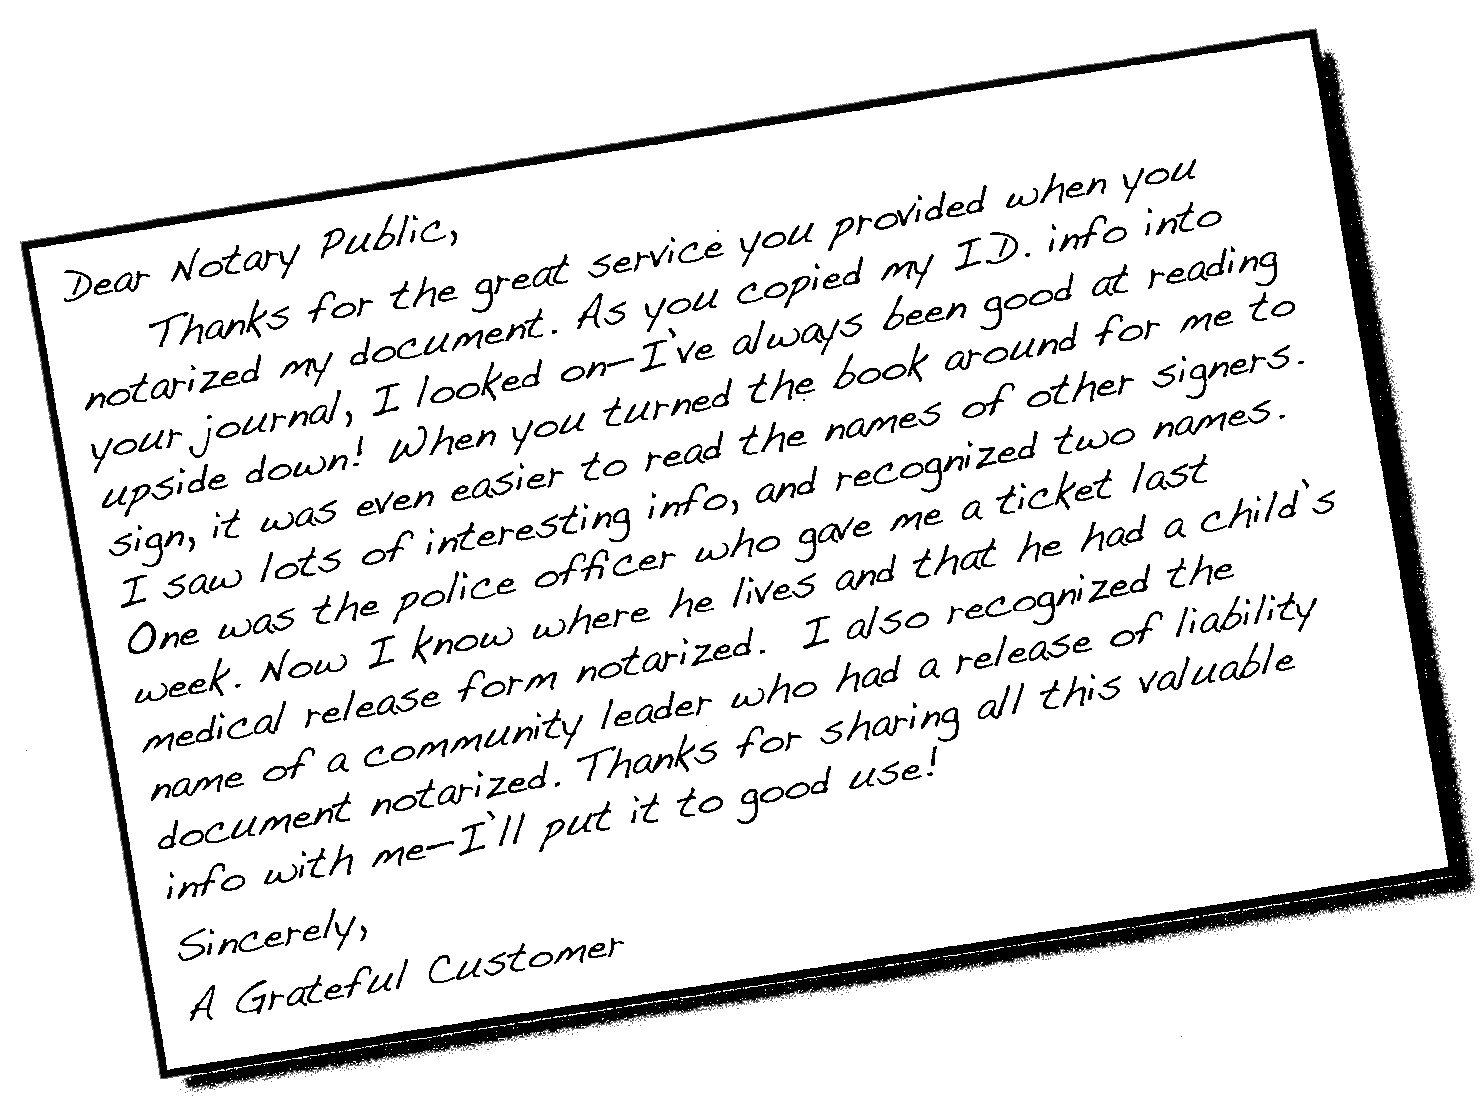 Dear Notary Public,
Thanks for the great service you provided when you
notarized my document. As you copied my ID. info into
your journal, I looked on—I've always been good at reading
upside down! When you turned the book around for me to
sign, it was even easier to read the names of other signers.
I saw lots of interesting info, and recognized two names.
One was the police officer who gave me a ticket last
week. Now I know where he lives and that he had a child's
medical release form notarized. I also recognized the
name of a community leader who had a release of liability
document notarized. Thanks for sharing all this valuable
info with me—I'll put it to good use!
Sincerely,
A Grateful Customer